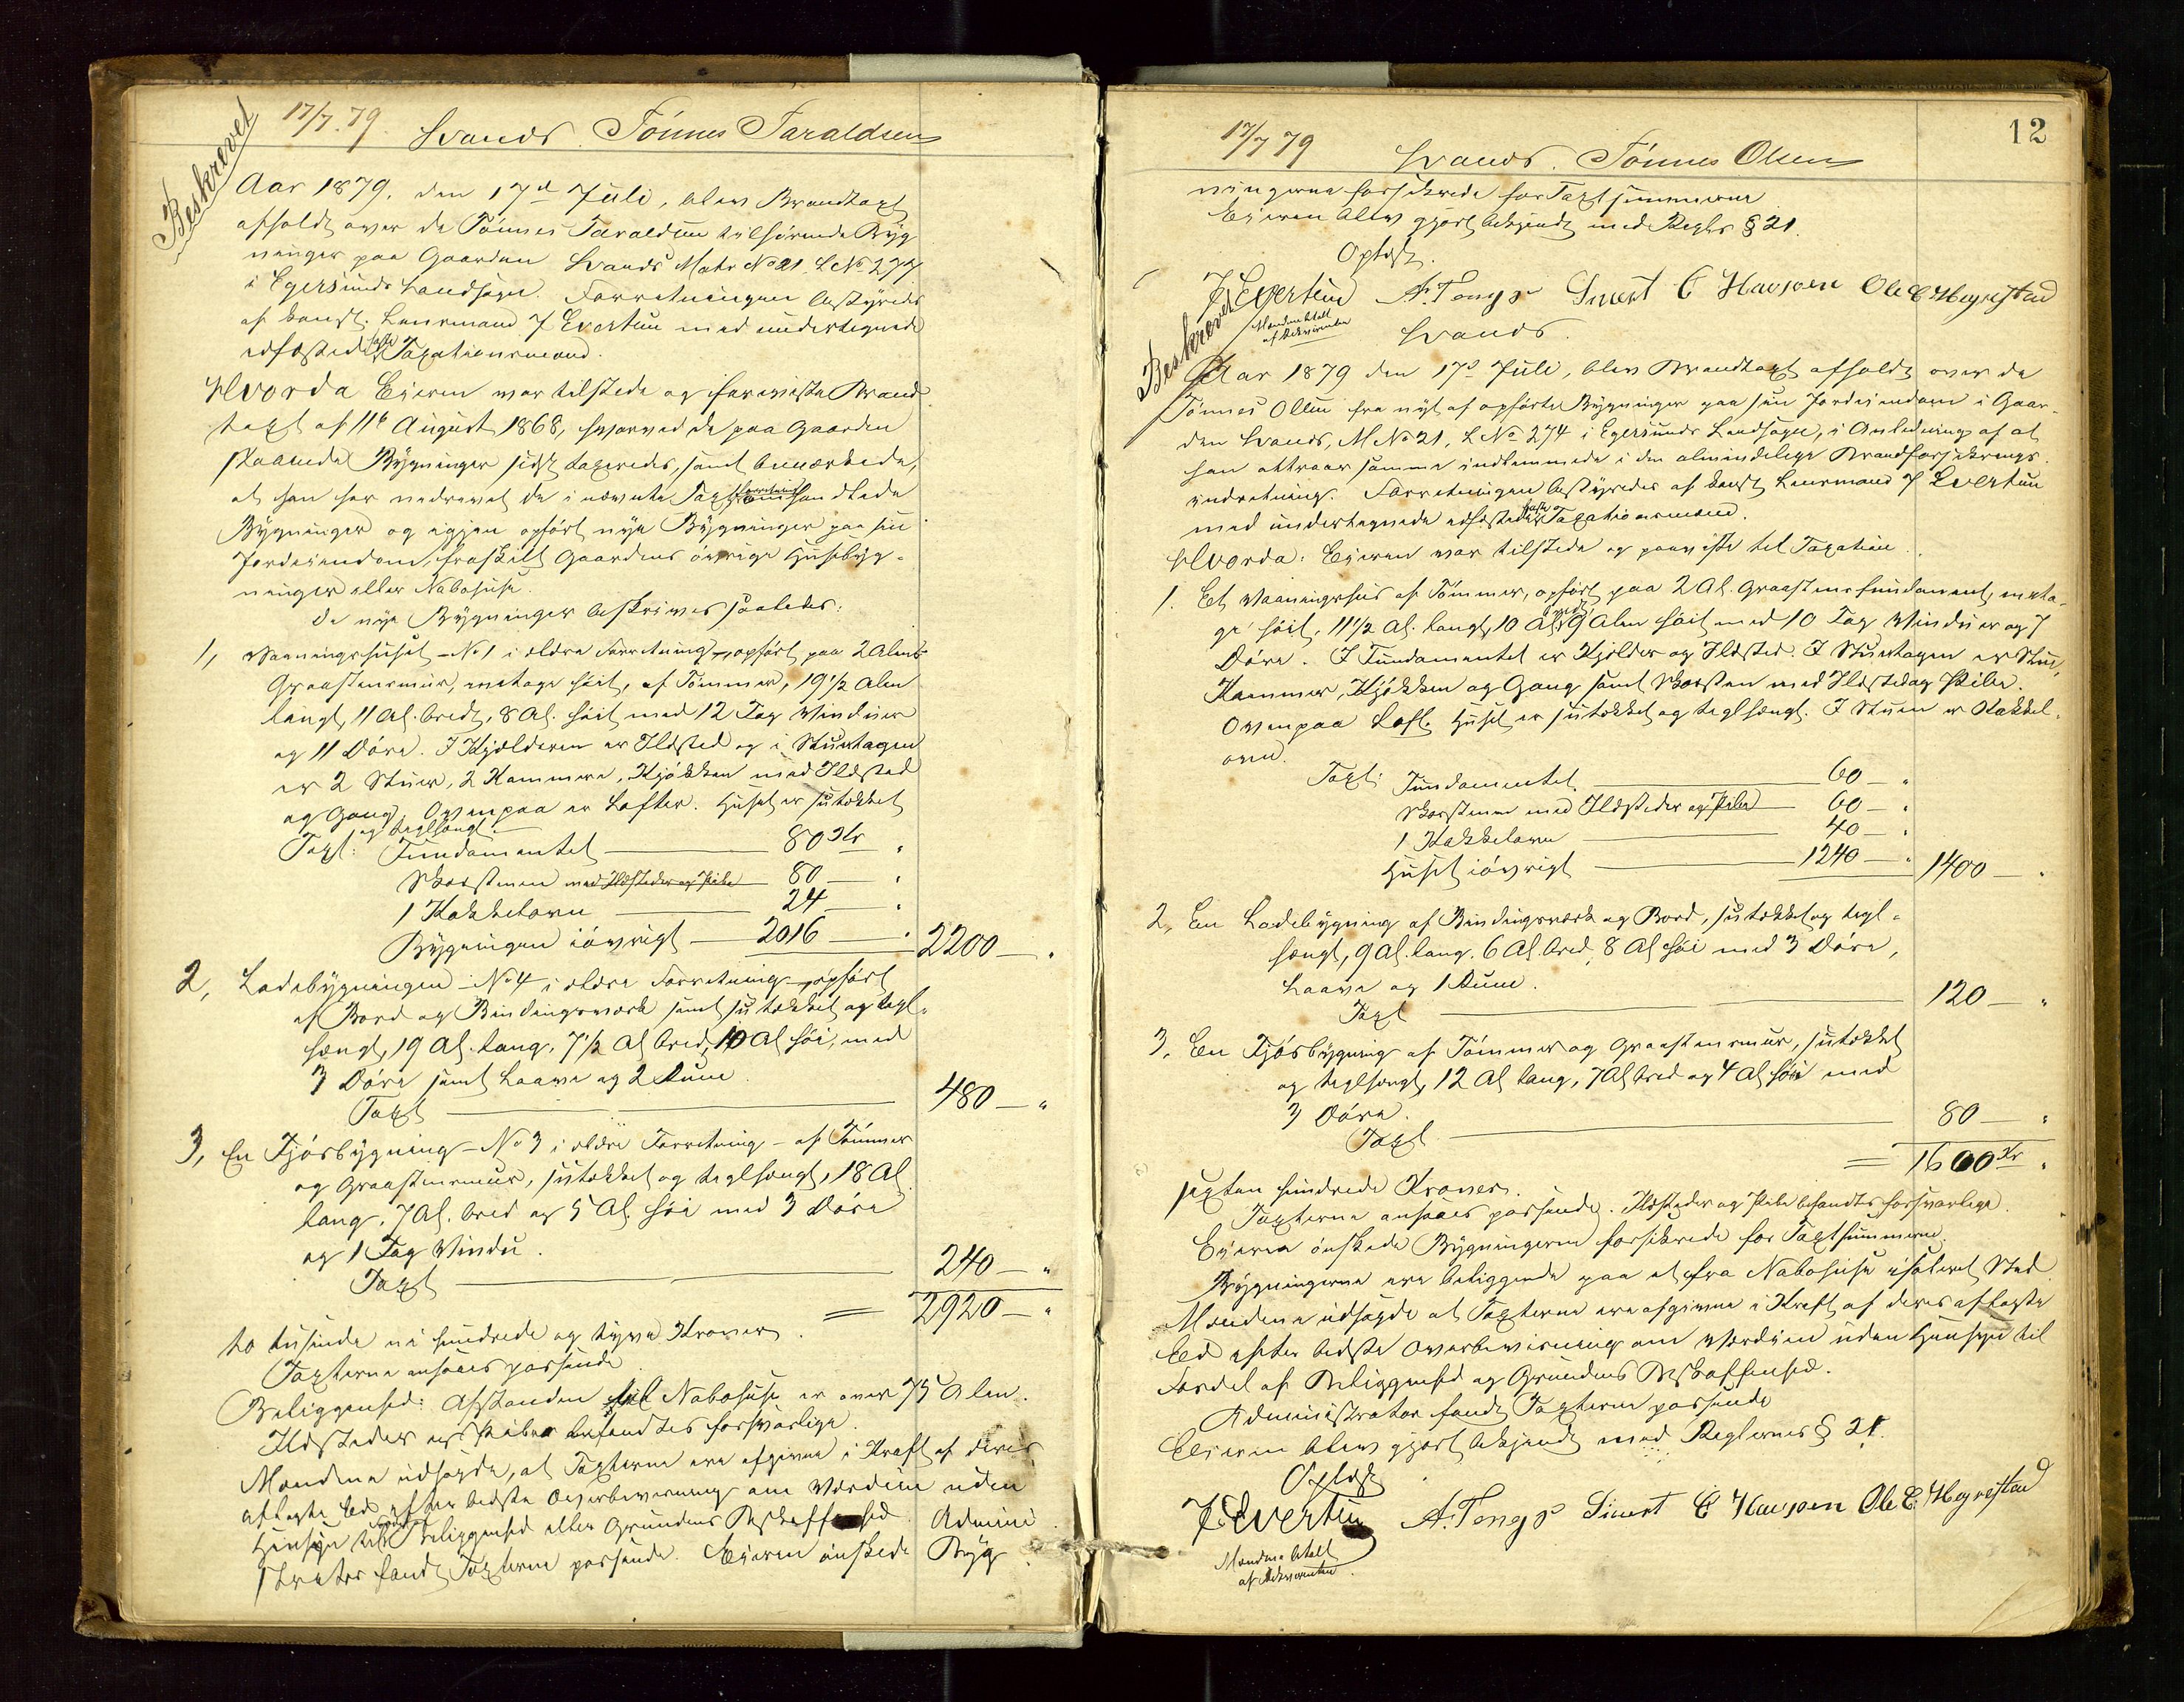 Beskrevet
17/7.79. Svanes. Tönnes Taraldsen
Aar 1879, den 17d Juli, blev Brandtaxt
afholdt over de Tönnes Taraldsen tilhørende Byg
ninger paa Gaarden Svanes Matr No 21 L No 277
i Egersunds Landsogn. Forretningen bestyredes
af const. Lensmand J Evertsen med undertegnede
edfæstede faste Taxationsmænd.
Hvorda Eieren var tilstede og foreviste Brand
taxt af 11te August 1868, hvorved de paa Gaarden
staaende Bygninger sidst taxeredes, samt bemærkede,
at han har nedrevet de i nævnte Taxtforretning omhandlede
Bygninger og igjen opført nye Bygninger paa sin
Jordeiendom, fraskilt Gaardens øvrige Husebyg-
ninger eller Nabohuse.
De nye Bygninger beskrives saaledes:
1, Vaaningshuset - No 1 i ældre Forretning -, opført paa 2 Alens
Graastensmur, en etage høit, af Tömmer, 19 1/2 Alen
langt, 11 Al. bredt, 8 Al. høit med 12 Fag Vinduer
og 11 Döre. I Kjælderen er Ildsted og i Stueetagen
er 2 Stuer, 2 Kammere, Kjøkken med Ildsted
og Gang. Ovenpaa er Lofter. Huset er sutækket
og teglhængt.
Taxt: Fundamentet 80 Kr "
Skorstenen med Ildsteder og Pibe 80 — "
1 Kakkelovn 24 — "
Bygningen iøvrigt 2016 — " 2200 — "
2, Ladebygningen - No 4 i ældre Forretning -, opført
af Bord og Bindingsværk samt sutækket og tegl-
hængt, 19 Al. lang, 7 1/2 Al bred, 10 Al høi, med
3 Döre samt Laave og 2 Rum.
Taxt 480 — "
3, En Fjösbygning - No 3 i ældre Forretning - af Tömmer
og Graastensmur, sutækket og teglhængt, 18 Al
lang, 7 Al. bred og 5 Al. høi med 3 Döre
og 1 Fag Vindu.
Taxt 240 — "
= 2920 — "
to tusinde ni hundrede og tyve Kroner.
Taxterne ansaaes passende.
Beliggenhed: Afstanden til Nabohuse er over 75 Alen.
Ildsteder og Piber befandtes forsvarlige.
Mændene udsagde, at Taxterne ere afgivne i Kraft af deres
aflagte Eed efter bedste Overbevisning om Værdien uden
Hensyn til Fordel af Beliggenhed eller Grundens Beskaffenhed. Admini
strator fandt Taxterne passende. Eieren ønskede Byg
12
17/7 79 Svanes. Tönnes Olsen
ningerne forsikrede for Taxtsummerne
Eieren blev gjort bekjendt med Regler § 21.
Oplæst.
J Evertsen A. Tengs Sivert E Havsøen Ole E. Hegrestad
Mændene betalt
af Rekvirenten
Beskrevet
Svanes.
Aar 1879 den 17d Juli, blev Brandtaxt afholdt over de
Tönnes Olsen fra nyt af opførte Bygninger paa sin Jordeiendom i Gaar-
den Svanes, M No 21, L No 274 i Egersunds Landsogn, i Anledning af at
han attraar samme indlemmede i den almindelige Brandforsikrings
indretning. Forretningen bestyredes af const Lensmand J Evertsen
med undertegnede edfæstede faste Taxationsmænd.
Hvorda: Eieren var tilstede og paaviste til Taxation.
1. Et Vaaningshus af Tömmer, opført paa 2 Al. Graastensfundament, en eta-
ge høit, 11 1/2 Al. langt, 10 Al. bredt, 9 Alen høit med 10 Fag Vinduer og 7
Döre. I Fundamentet er Kjelder og Ildsted. I Stueetagen er Stue,
Kammer, Kjøkken og Gang samt Skorsten med Ildsted og Pibe.
Ovenpaa Loft. Huset er sutækket og teglhængt. I Stuen er Kakkel-
ovn.
Taxt: Fundamentet 60 — "
Skorstenen med Ildsteder og Pibe 60 — "
1 Kakkelovn 40 — "
Huset iøvrigt 1240 — " 1400 — "
2, En Ladebygning af Bindingsværk og Bord, sutækket og tegl-
hængt, 9 Al. lang, 6 Al. bred, 8 Al høi med 3 Döre,
Laave og 1 Rum.
Taxt 120 — "
3, En Fjösbygning af Tömmer og Graastensmur, sutækket
og teglhængt, 12 Al lang, 7 Al bred og 4 Al høi med
3 Döre.
Taxt 80 — "
= 1600 Kr "
sexten hundrede Kroner.
Taxterne ansaaes passende. Ildsteder og Pibe befandtes forsvarlige.
Eieren ønskede Bygningerne forsikrede for Taxtsummerne.
Bygningerne ere beliggende paa et fra Nabohuse isoleret Sted.
Mændene udsagde at Taxterne ere afgivne i Kraft af deres aflagte
Eed efter bedste Overbevisning om Værdien uden Hensyn til
Fordel af Beliggenhed og Grundens Beskaffenhed.
Administrator fandt Taxterne passende
Eieren blev gjort bekjendt med Reglernes § 21.
Oplæst
J Evertsen A. Tengs Sivert E Havsøen Ole E. Hegrestad
Mændene betalt
af Rekvirenten.